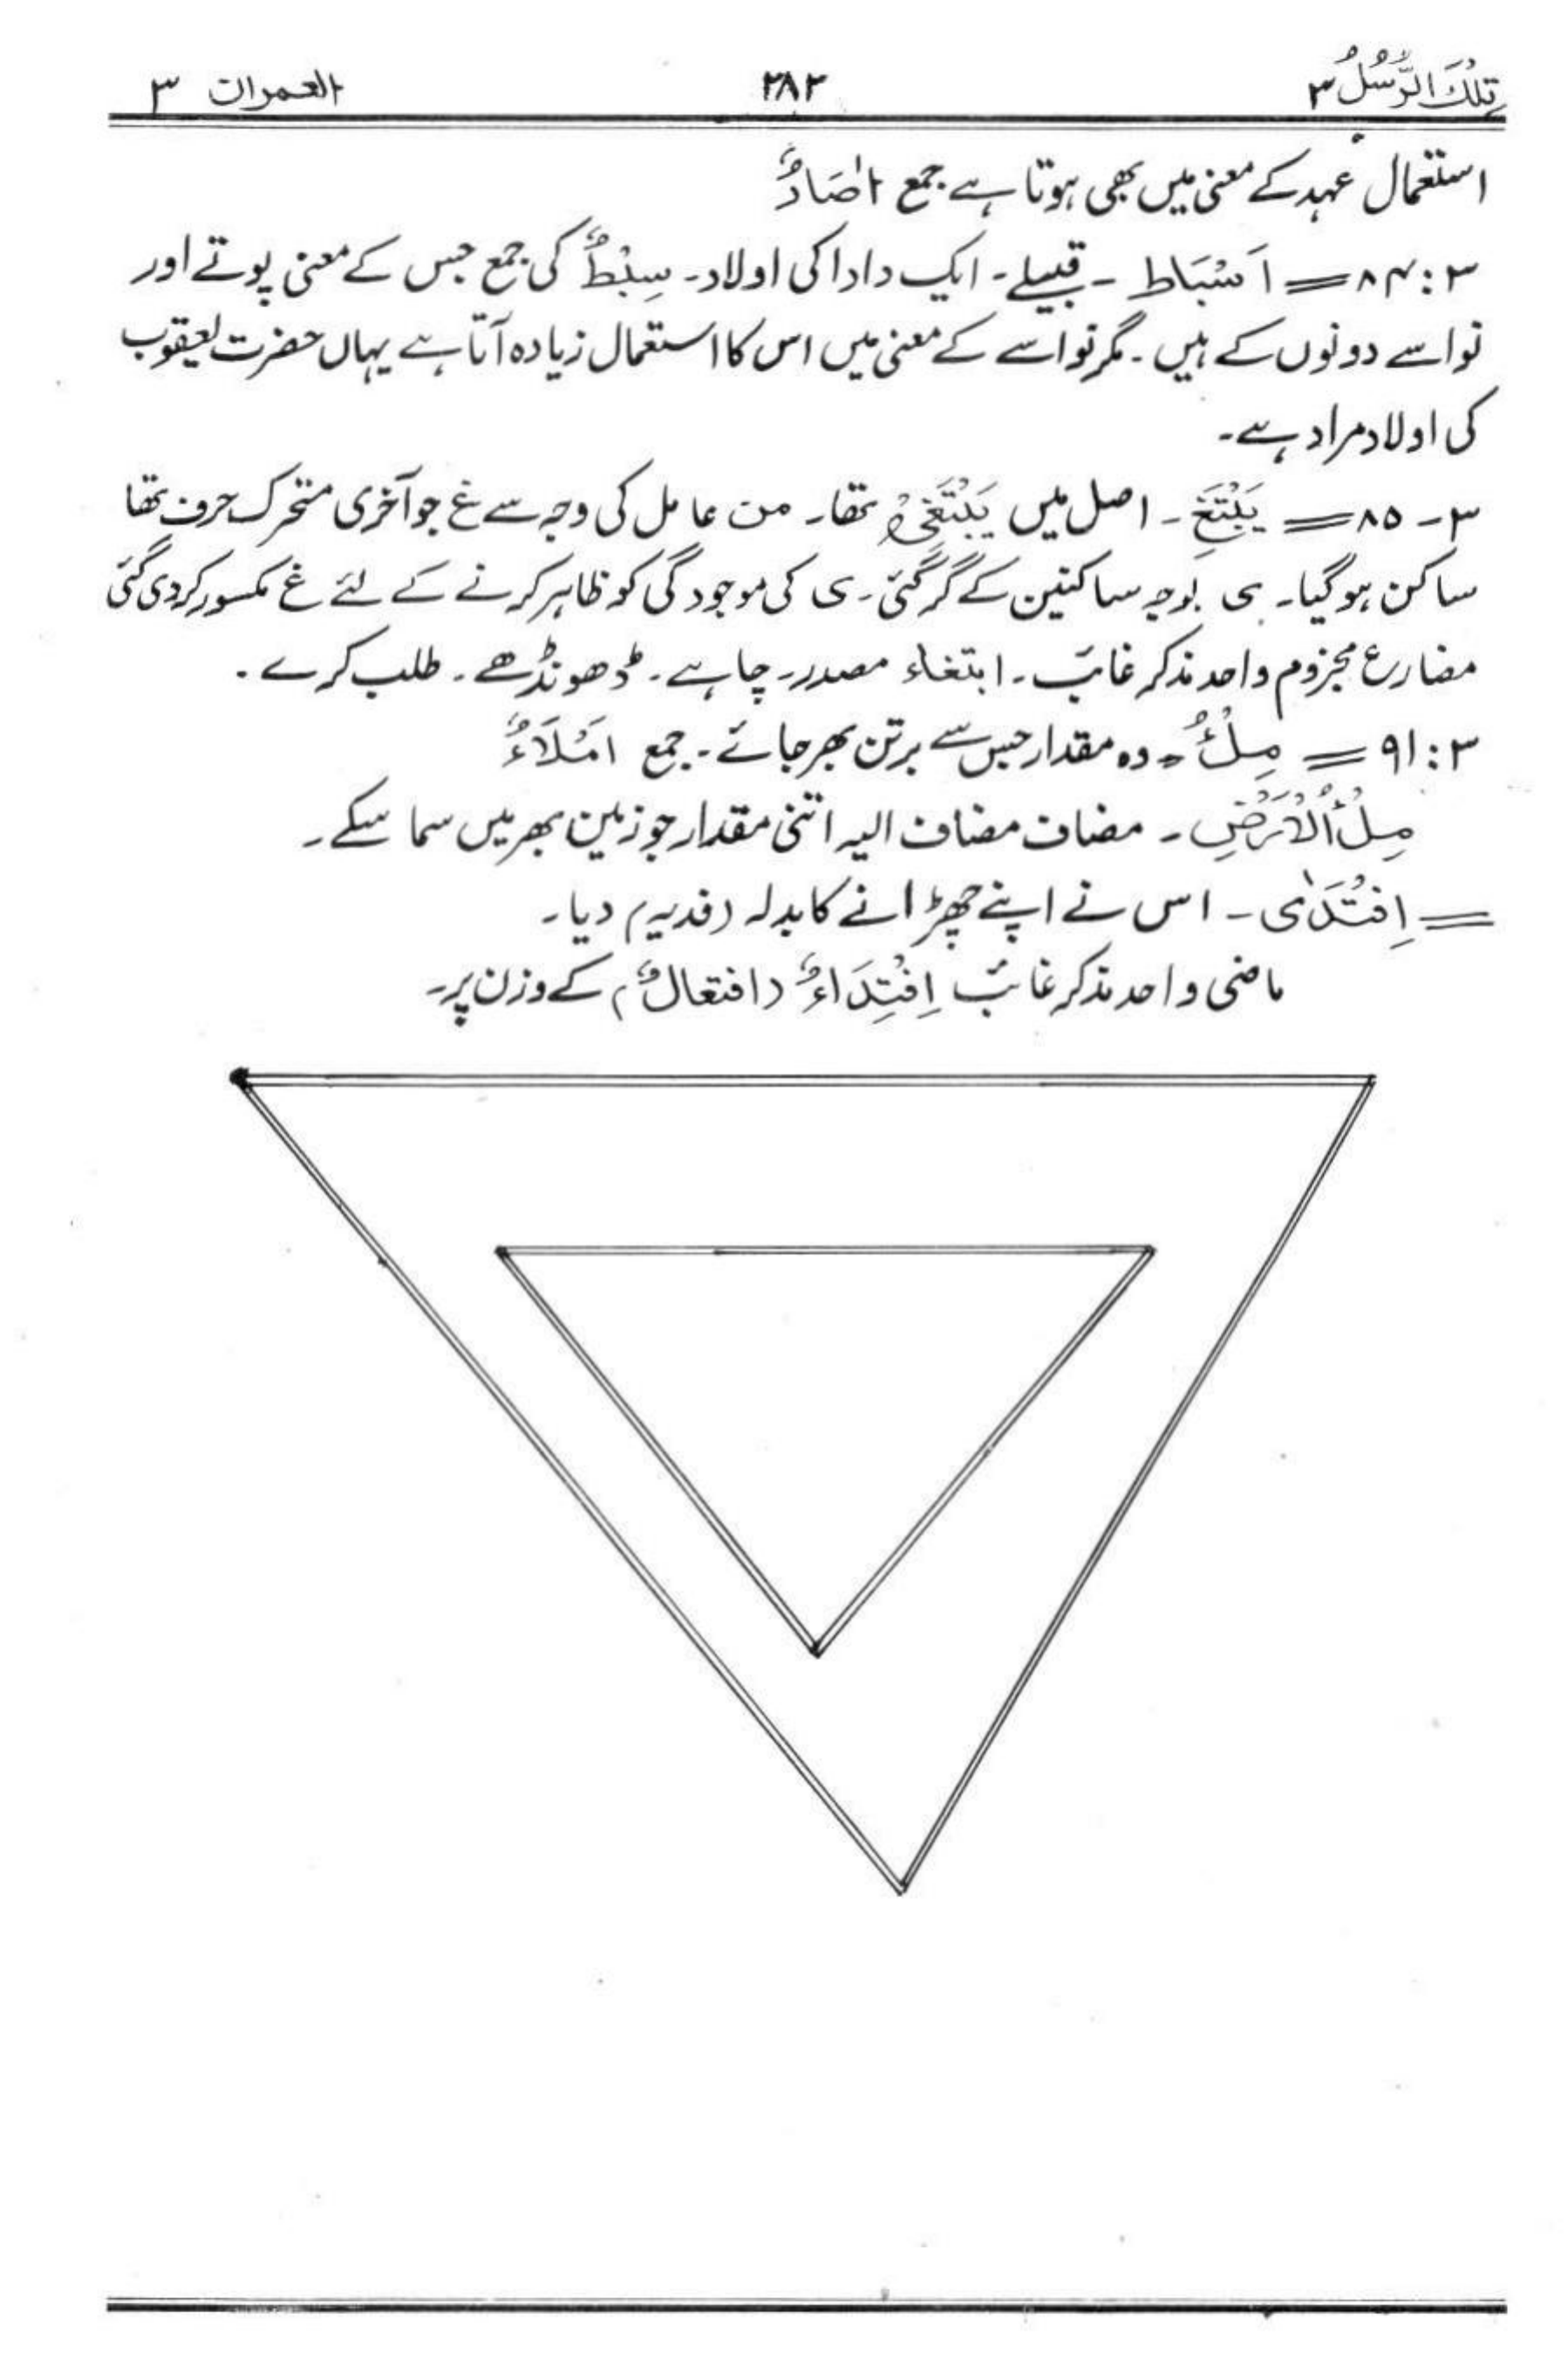 تِلْكَ الرُّسُلُ ۳ ۲۸۲ اٰلعمران ۳
استعمال عہد کے معنی میں بھی ہوتا ہے جمع اٰصَادٌ
۳:۸۴ = اَسْبَاط ۔ قبیلے ۔ ایک دادا کی اولاد ۔ سِبْطٌ کی جمع جس کے معنی پوتے اور
نواسے دونوں کے ہیں ۔ مگر نواسے کے معنی میں اس کا استعمال زیادہ آتا ہے یہاں حضرت یعقوب
کی اولاد مراد ہے ۔
۳ ۔ ۸۵ = يَبْتَغِ ۔ اصل میں يَبْتَغِىْ تھا ۔ من عامل کی وجہ سے غ جو آخری متحرک حرف تھا
ساکن ہو گیا ۔ ی بوجہ ساکنین کے گر گئی ۔ ی کی موجودگی کو ظاہر کرنے کے لئے غ مکسور کر دی گئی
مضارع مجزوم واحد مذکر غائب ۔ ابتغاء مصدر ۔ چاہے ۔ ڈھونڈھے ۔ طلب کرے ۔
۳:۹۱ = مِلْءُ ۔ وہ مقدار جس سے برتن بھر جائے ۔ جمع اَمْلَاءٌ
مِلْءُ الْاَرْضِ ۔ مضاف مضاف الیہ اتنی مقدار جو زمین بھر میں سما سکے ۔
= اِفْتَدٰى ۔ اس نے اپنے چھڑانے کا بدلہ (فدیہ) دیا ۔
ماضی واحد مذکر غائب اِفْتِدَاءٌ (افتعالٌ) کے وزن پر ۔